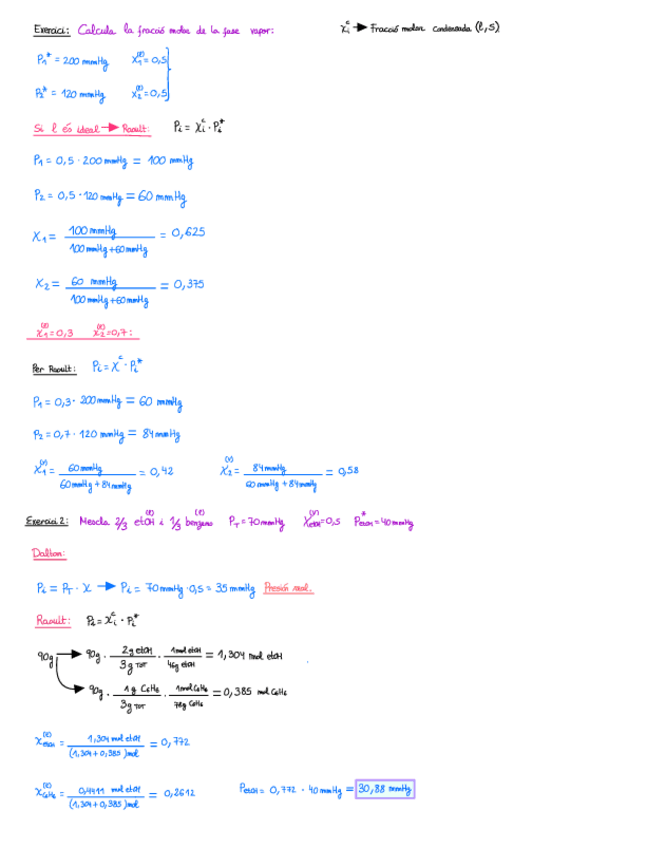 Exercici: Calcula la fracció molar de la fase vapor:
χᵢᶜ → Fracció molar condensada (l,s)
P₁* = 200 mmHg χ₁⁽ˡ⁾ = 0,5
P₂* = 120 mmHg χ₂⁽ˡ⁾ = 0,5
Si l és ideal → Raoult: Pᵢ = χᵢᶜ · Pᵢ*
P₁ = 0,5 · 200 mmHg = 100 mmHg
P₂ = 0,5 · 120 mmHg = 60 mmHg
χ₁ = 100 mmHg / 100 mmHg + 60 mmHg = 0,625
χ₂ = 60 mmHg / 100 mmHg + 60 mmHg = 0,375
χ₁⁽ˡ⁾ = 0,3 χ₂⁽ˡ⁾ = 0,7:
Per Raoult: Pᵢ = χᶜ · Pᵢ*
P₁ = 0,3 · 200 mmHg = 60 mmHg
P₂ = 0,7 · 120 mmHg = 84 mmHg
χ₁⁽ᵛ⁾ = 60 mmHg / 60 mmHg + 84 mmHg = 0,42 χ₂⁽ᵛ⁾ = 84 mmHg / 60 mmHg + 84 mmHg = 0,58
Exercici 2: Mescla 2/3 etOH⁽ˡ⁾ i 1/3 benzeno⁽ˡ⁾ P_T = 70 mmHg χ_etOH⁽ᵛ⁾ = 0,5 P*_etOH = 40 mmHg
Dalton:
Pᵢ = P_T · χ → Pᵢ = 70 mmHg · 0,5 = 35 mmHg Presión real.
Raoult: Pᵢ = χᵢᶜ · Pᵢ*
90g → 90g · 2g etOH / 3g TOT · 1mol etOH / 46g etOH = 1,304 mol etOH
→ 90g · 1g C₆H₆ / 3g TOT · 1mol C₆H₆ / 78g C₆H₆ = 0,385 mol C₆H₆
χ_etOH⁽ˡ⁾ = 1,304 mol etOH / (1,304 + 0,385) mol = 0,772
χ_C₆H₆⁽ˡ⁾ = 0,4411 mol etOH / (1,304 + 0,385) mol = 0,2612 P_etOH = 0,772 · 40 mmHg = 30,88 mmHg